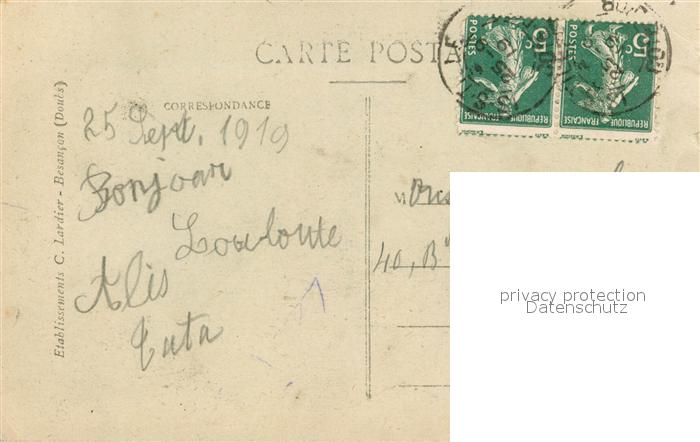 CARTE POSTA
CORRESPONDANCE
25 Sept. 1919
Bonjour
Louloute
Alis
Tata
Etablissements C. Lardier - Besançon (Doubs)
5c
POSTES
REPUBLIQUE FRANÇAISE
5c
POSTES
REPUBLIQUE FRANÇAISE
M
40, B
privacy protection
Datenschutz